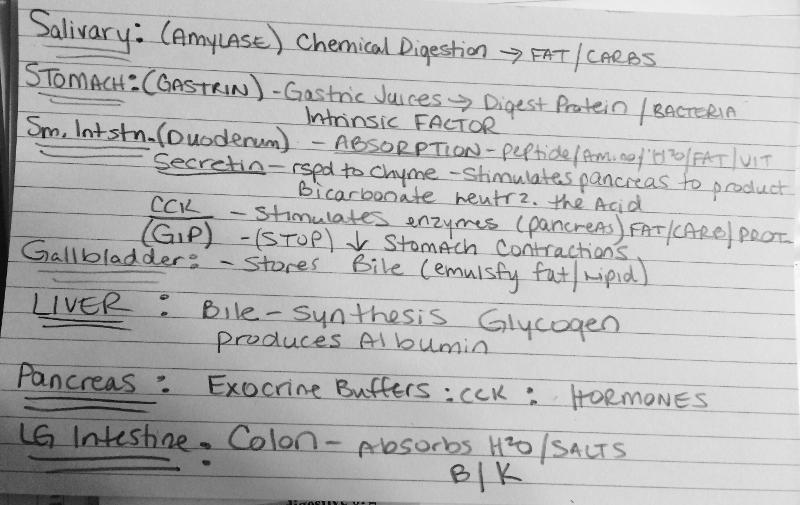 Salivary: (AMYLASE) Chemical Digestion → FAT/CARBS
STOMACH: (GASTRIN) - Gastric Juices → Digest Protein / BACTERIA
Intrinsic FACTOR
Sm. Intstn. (Duodenum) - ABSORPTION - peptide/Amino/H²O/FAT/VIT
Secretin - rspd to chyme - Stimulates pancreas to product
Bicarbonate neutrz. the Acid
CCK - Stimulates enzymes (pancreas) FAT/CARB/PROT.
(GIP) - (STOP) ↓ Stomach Contractions
Gallbladder: - Stores Bile (emulsfy fat/Lipid)
LIVER : Bile - Synthesis Glycogen
Produces Albumin
Pancreas : Exocrine Buffers : CCK : HORMONES
LG Intestine : Colon - Absorbs H²O/SALTS
B/K